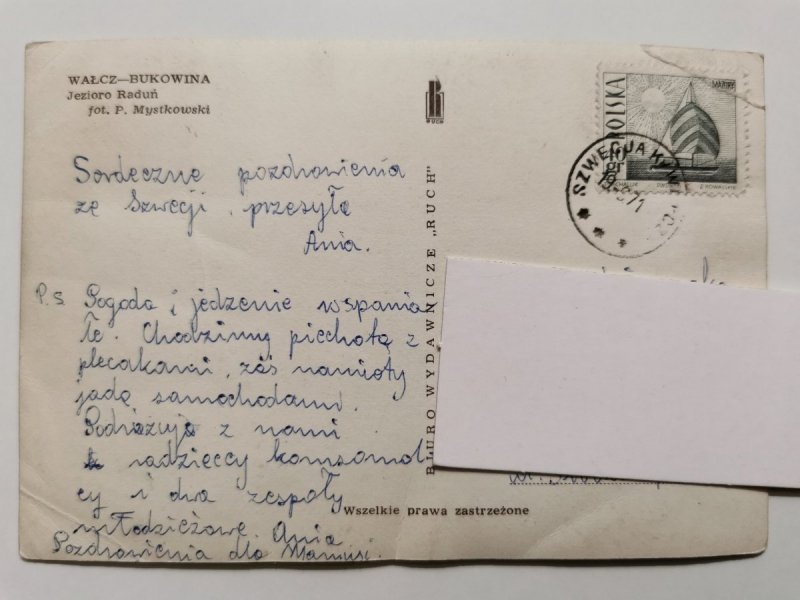 WAŁCZ—BUKOWINA
Jezioro Raduń
fot. P. Mystkowski
RUCH
POLSKA
10 gr
SZWECJA K/WAŁCZ
Serdeczne pozdrowienia
ze Szwecji przesyła
Ania.
P.S Pogoda i jedzenie wspania
łe. Chodzimy piechotą z
plecakami, zaś namioty
jadą samochodami.
Podróżują z nami
radzieccy komsomol
cy i dwa zespoły
młodzieżowe. Ania
Pozdrowienia dla Mamusi.
BIURO WYDAWNICZE „RUCH"
Wszelkie prawa zastrzeżone